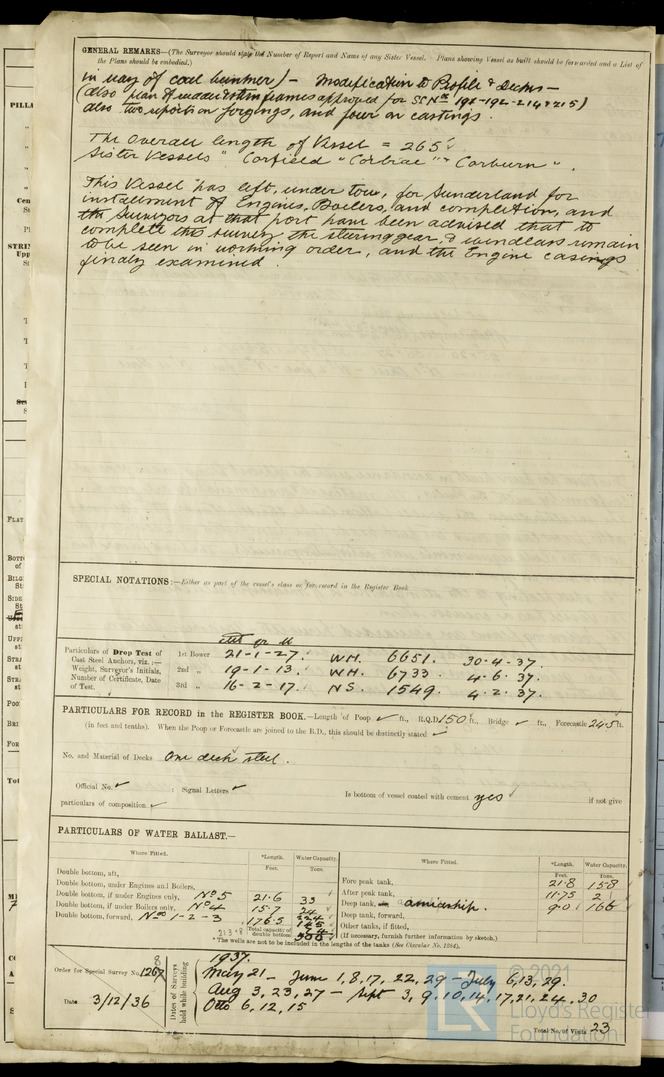 GENERAL REMARKS—(The Surveyor should state the Number of Report and Name of any Sister Vessel. Plans showing Vessel as built should be forwarded and a List of
the Plans should be embodied.)
in way of coal bunker) - Modification to Profile & Decks -
(also plan of rudder & stern frames approved for SS Nos 191-192-214 & 215)
also two reports on forgings, and four on castings.
The overall length of Vessel = 265'
Sister Vessels "Corfield" "Corbrae" "Corburn".
This Vessel has left, under tow, for Sunderland for
installment of Engines, Boilers, and completion, and
the Surveyors at that port have been advised that to
complete this survey the steering gear, & windlass remain
to be seen in working order, and the Engine casings
finally examined.
SPECIAL NOTATIONS:—Either as part of the vessel's class or for record in the Register Book
Particulars of Drop Test of
Cast Steel Anchors, viz.:—
Weight, Surveyor's Initials,
Number of Certificate, Date
of Test.
cwt qr lb
1st Bower 21-1-27. W.H. 6651. 30.4.37.
2nd „ 19-1-13. W.H. 6733. 4.6.37.
3rd „ 16-2-17. N.S. 1549. 4.2.37.
PARTICULARS FOR RECORD in the REGISTER BOOK.—Length of Poop ✓ ft., R.Q.D. 150 ft., Bridge ✓ ft., Forecastle 24.5 ft.
(in feet and tenths). When the Poop or Forecastle are joined to the B.D., this should be distinctly stated ✓
No. and Material of Decks One deck steel.
Official No. ✓ : Signal Letters ✓ Is bottom of vessel coated with cement yes if not give
particulars of composition ✓
PARTICULARS OF WATER BALLAST.—
Where Fitted. *Length. Water Capacity. Where Fitted. *Length. Water Capacity.
Feet. Tons. Feet. Tons.
Double bottom, aft, Fore peak tank, 21.8 158
Double bottom, under Engines and Boilers, After peak tank, 11.75 21
Double bottom, if under Engines only, No 5 21.6 33 Deep tank, amidship. 9.0 166
Double bottom, if under Boilers only, No 4 15.7 24 Deep tank, forward,
Double bottom, forward, Nos 1-2-3 176.5 Other tanks, if fitted,
213.8 Total capacity of double bottom (If necessary, furnish further information by sketch.)
* The wells are not to be included in the lengths of the tanks (See Circular No. 1284).
Order for Special Survey No. 1268
Date 3/12/36
Dates of Surveys held while building
1937.
May 21 - June 1, 8, 17, 22, 29 - July 6, 13, 29.
Aug 3, 23, 27 - Sept 3, 9, 10, 14, 17, 21, 24, 30
Octo 6, 12, 15
Total No. of Visits 23
© 2021
Lloyd's Register
Foundation